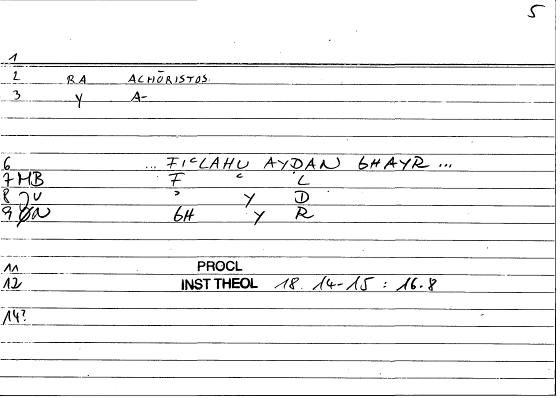 5
1
2 RA ACHŌRISTOS
3 Y A-
6 ... FIʿLAHU AYDAN GHAYR ...
7 MB F ʿ L
8 ʾ Y D
9 GH Y R
11 PROCL
12 INST THEOL 18. 14-15 : 16.8
14?